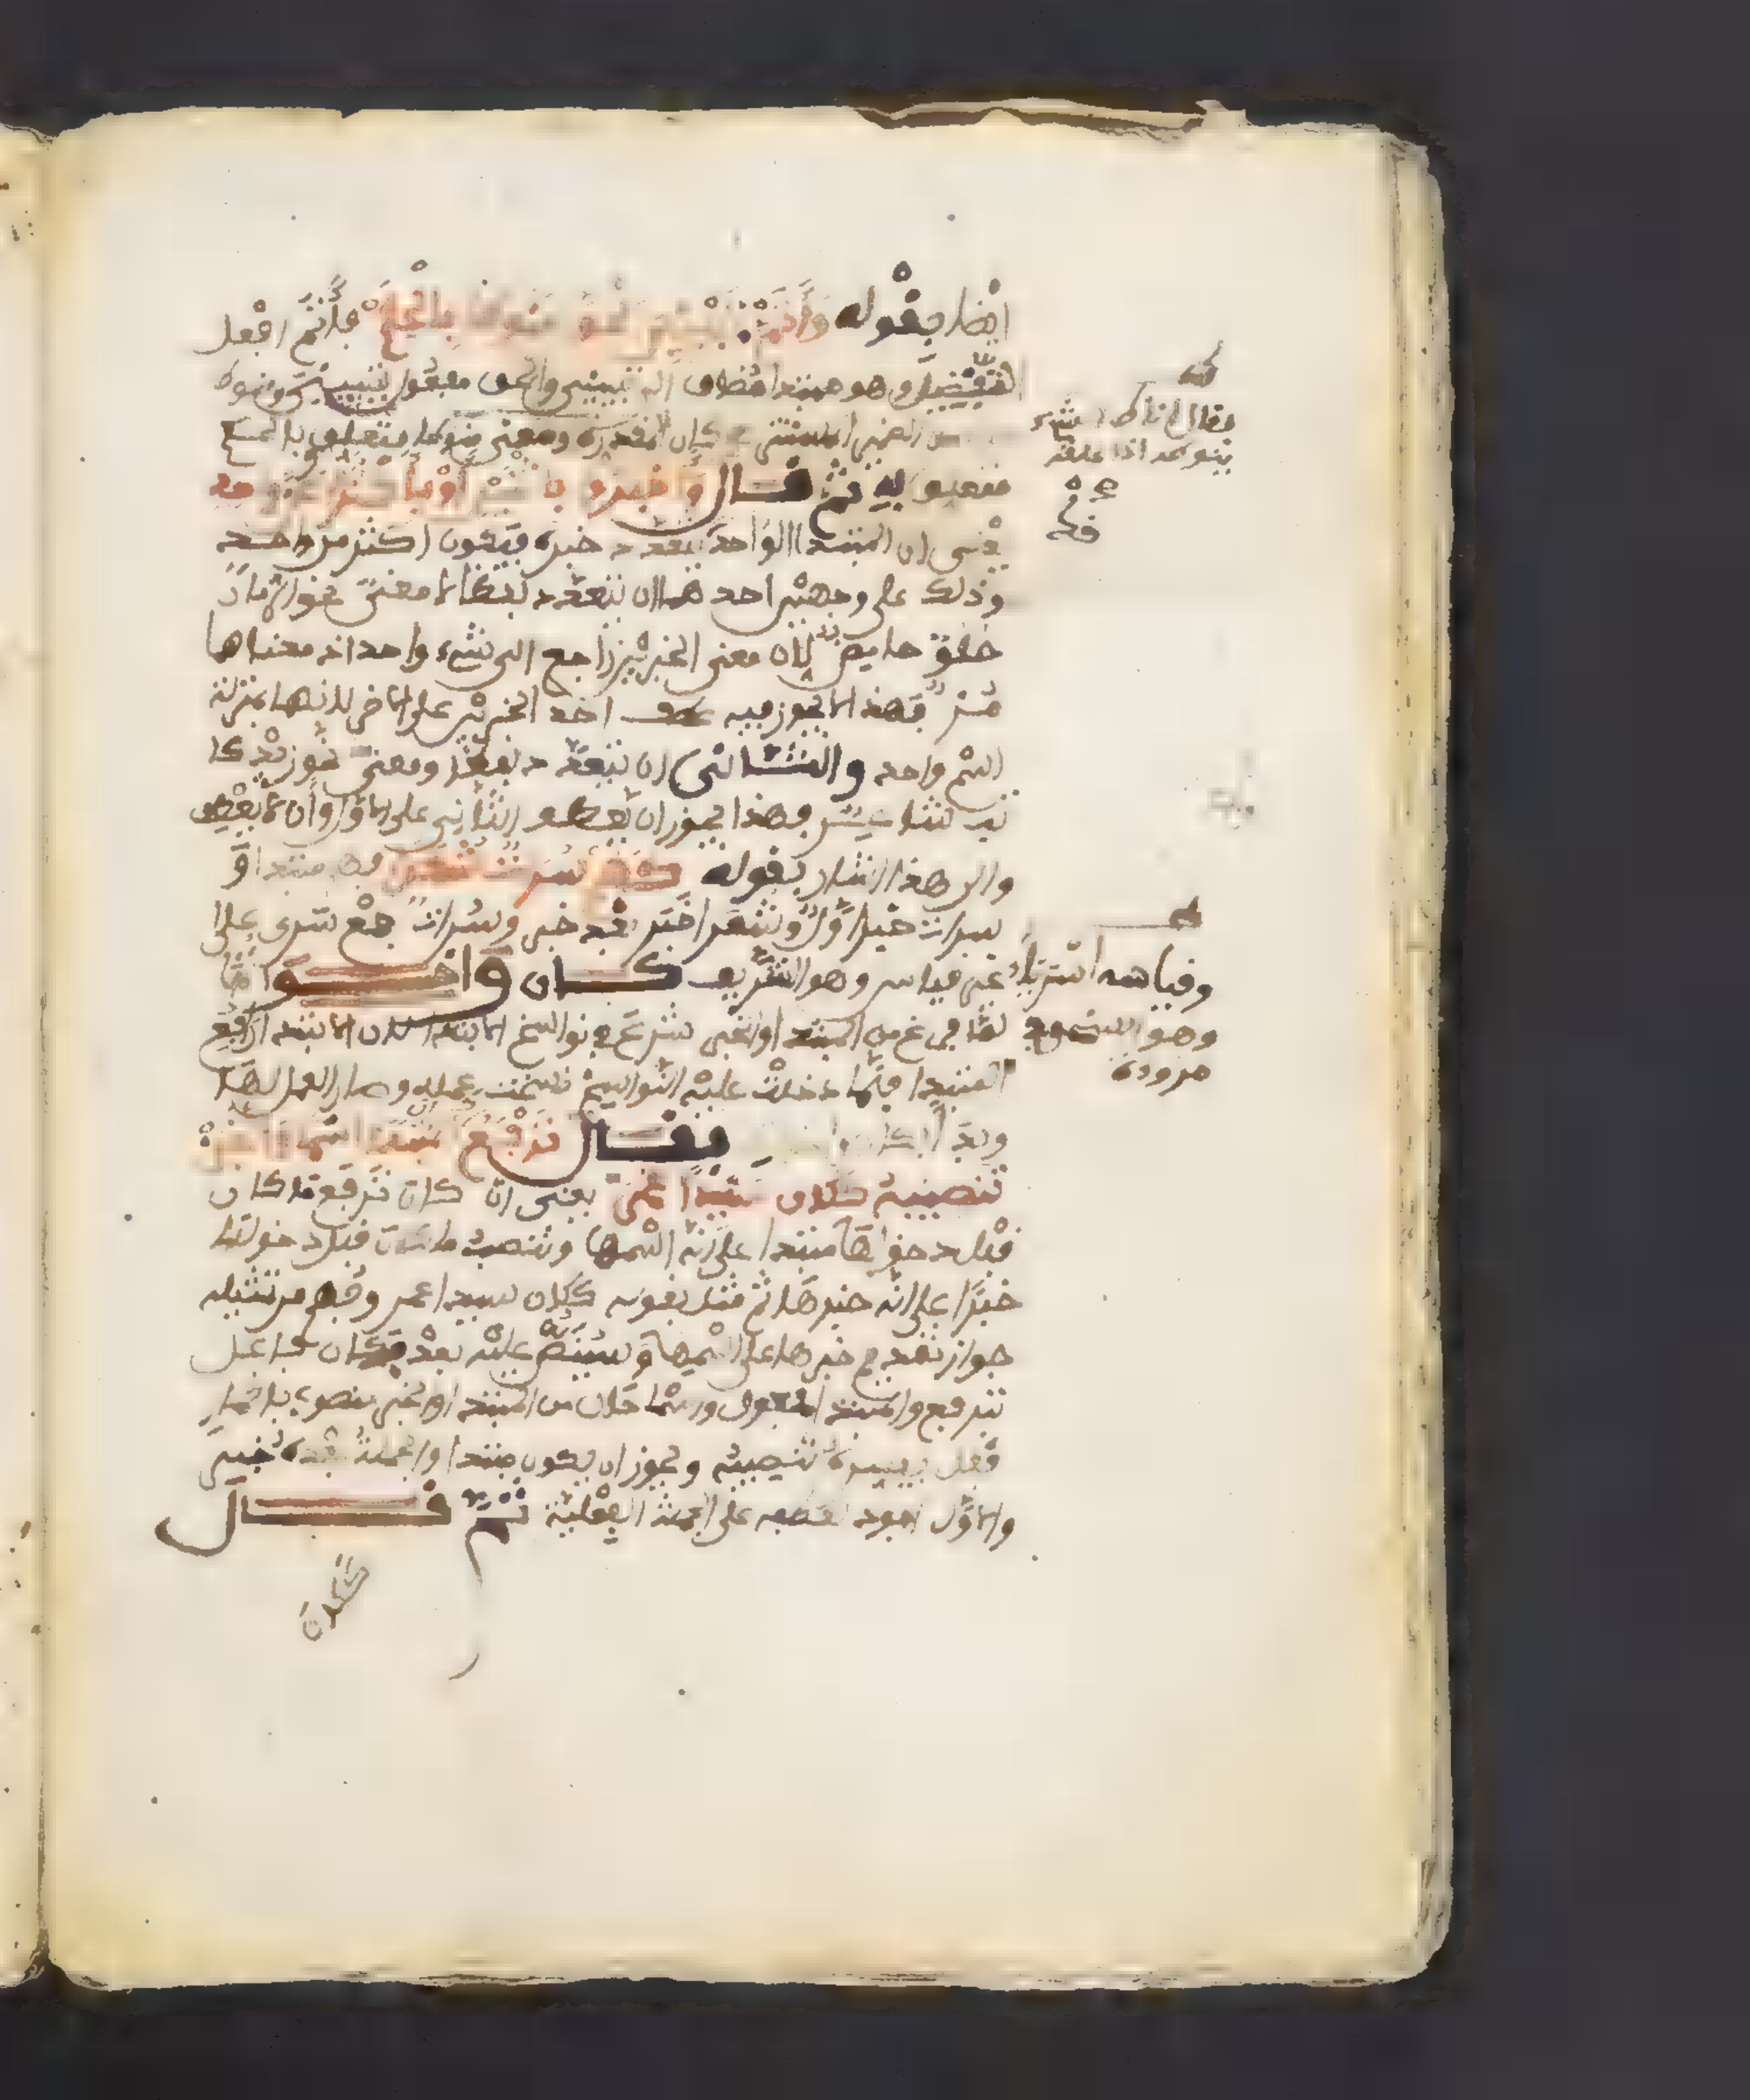 ايضا بقوله وأتم تبييني الحق منوطا بالحكم فأتم افعل
التفضيل وهو مبتدا مضاف الى تبييني والحق مفعول تبييني ومنوطا
المفدرة ومعنى منوطا متعلق بالحكم
متعلق به ثم قال وأخبروا باثنين أو بأكثرا عن واحد
يعنى ان المبتدا الواحد يتعدد خبره فيكون اكثر من واحد
وذلك على وجهين احدهما ان يتعدد لفظا لا معنى نحو الرمان
حلو حامض لان معنى الخبرين راجع الى شيء واحد اذ معناهما
مز فهذا لا يجوز فيه عطف احد الخبرين على الاخر لانهما بمنزلة
اسم واحد والثاني ان يتعدد لفظا ومعنى نحو زيد كا
تب شاعر فهذا يجوز ان يعطف الثاني على الاول وان لا يعطف
والى هذا اشار بقوله كهم سراة شعرا فهم مبتدا و
سراة خبر اول وشعرا خبر بعد خبر وسراة جمع سري على
غير قياس وهو الشريف كان واخواتها
لما فرغ من المبتدا والخبر شرع في نواسخ الابتدا لان الابتدا رفع
المبتدا فلما دخلت عليه النواسخ نسخت عمله وصار العمل لها
فقال ترفع كان المبتدا اسما والخبر
تنصبه ككان سيدا عمر يعنى ان كان ترفع ما كان
قبل دخولها مبتدا على انه اسمها وتنصب ما كان قبل دخولها
خبرا على انه خبرها ثم مثل بقوله ككان سيدا عمر وفهم من تمثيله
جواز تقديم خبرها على اسمها وسينص عليه بعد فكان فاعل
بترفع والمبتدا مفعول واسما حال من المبتدا والخبر منصوب باضمار
فعل يفسره تنصبه ويجوز ان يكون مبتدا والجملة بعده خبر
والاول اجود لعطفه على الجملة الفعلية ثم قال
ككان
يقال ناط الشيء
ينوطه اذا علقه
وقياسه اسرياء